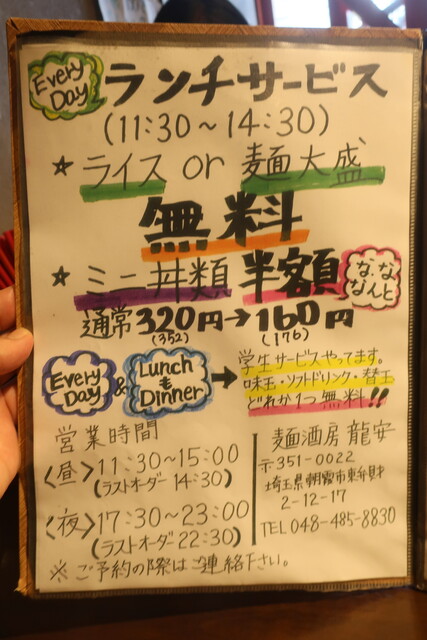 Every Day
ランチサービス
(11:30～14:30)
★ライス or 麺大盛
無料
★ミニ丼類 半額
な、な なんと
通常320円→160円
(352) (176)
Every Day & Lunch も Dinner →
学生サービスやってます。
味玉・ソフトドリンク・替玉
どれか1つ無料!!
営業時間
〈昼〉11:30～15:00
(ラストオーダー 14:30)
〈夜〉17:30～23:00
(ラストオーダー 22:30)
※ご予約の際はご連絡下さい。
麺酒房 龍安
〒351-0022
埼玉県朝霞市東弁財
2-12-17
TEL 048-485-8830